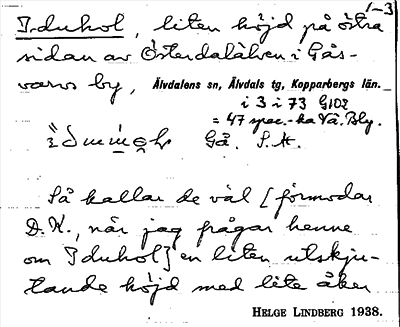 1-3
Iduhol, liten höjd på östra
sidan av Österdalälven i Gås-
varvs by, Älvdalens sn, Älvdals tg, Kopparbergs län.
i 3 i 73 G102
= 47 spec.-ka Vä. Bly.
Gå. S.H.
Så kallar de väl [förmodar
D.K., när jag frågar henne
om Iduhol] en liten utskju-
tande höjd med lite åker
HELGE LINDBERG 1938.